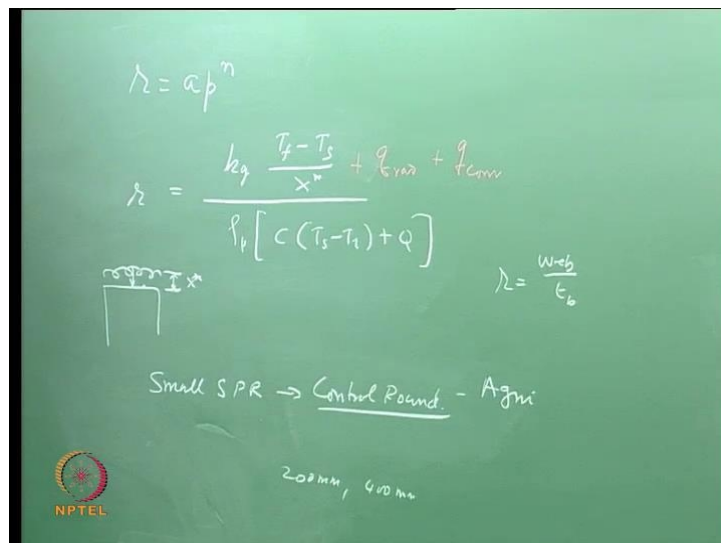 r = ap^n
r = k_g (T_f - T_s)/x* + q_rad + q_conv / ρ_p [C (T_s - T_i) + Q]
x*
r = web/t_b
Small SPR → Control Round. - Agni
200mm, 400mm
NPTEL